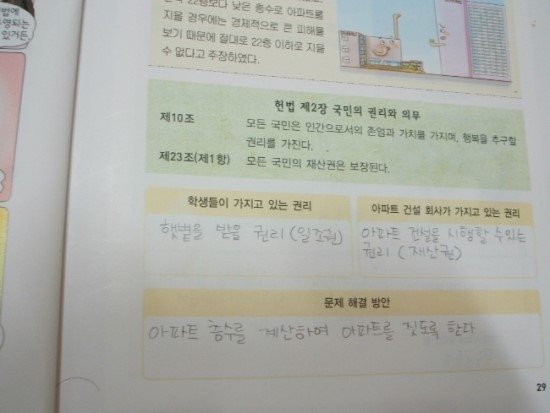 법에
영되는
있거든
22층보다 낮은 층수로 아파트를
지을 경우에는 경제적으로 큰 피해를
보기 때문에 절대로 22층 이하로 지을
수 없다고 주장하였다.
헌법 제2장 국민의 권리와 의무
제10조 모든 국민은 인간으로서의 존엄과 가치를 가지며, 행복을 추구할
권리를 가진다.
제23조(제1항) 모든 국민의 재산권은 보장된다.
학생들이 가지고 있는 권리
햇볕을 받을 권리 (일조권)
아파트 건설 회사가 가지고 있는 권리
아파트 건설을 시행할 수 있는
권리 (재산권)
문제 해결 방안
아파트 층수를 계산하여 아파트를 짓도록 한다
29